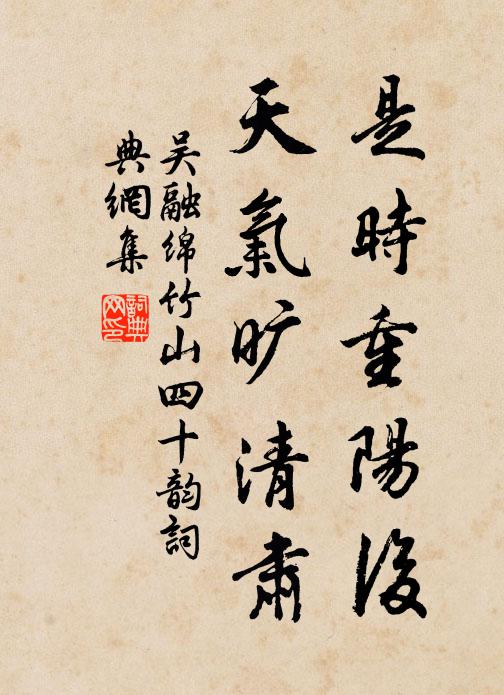 是時重陽後
天氣旷清肅
吴融绵竹山四十韵詞
典網集
詞典網印